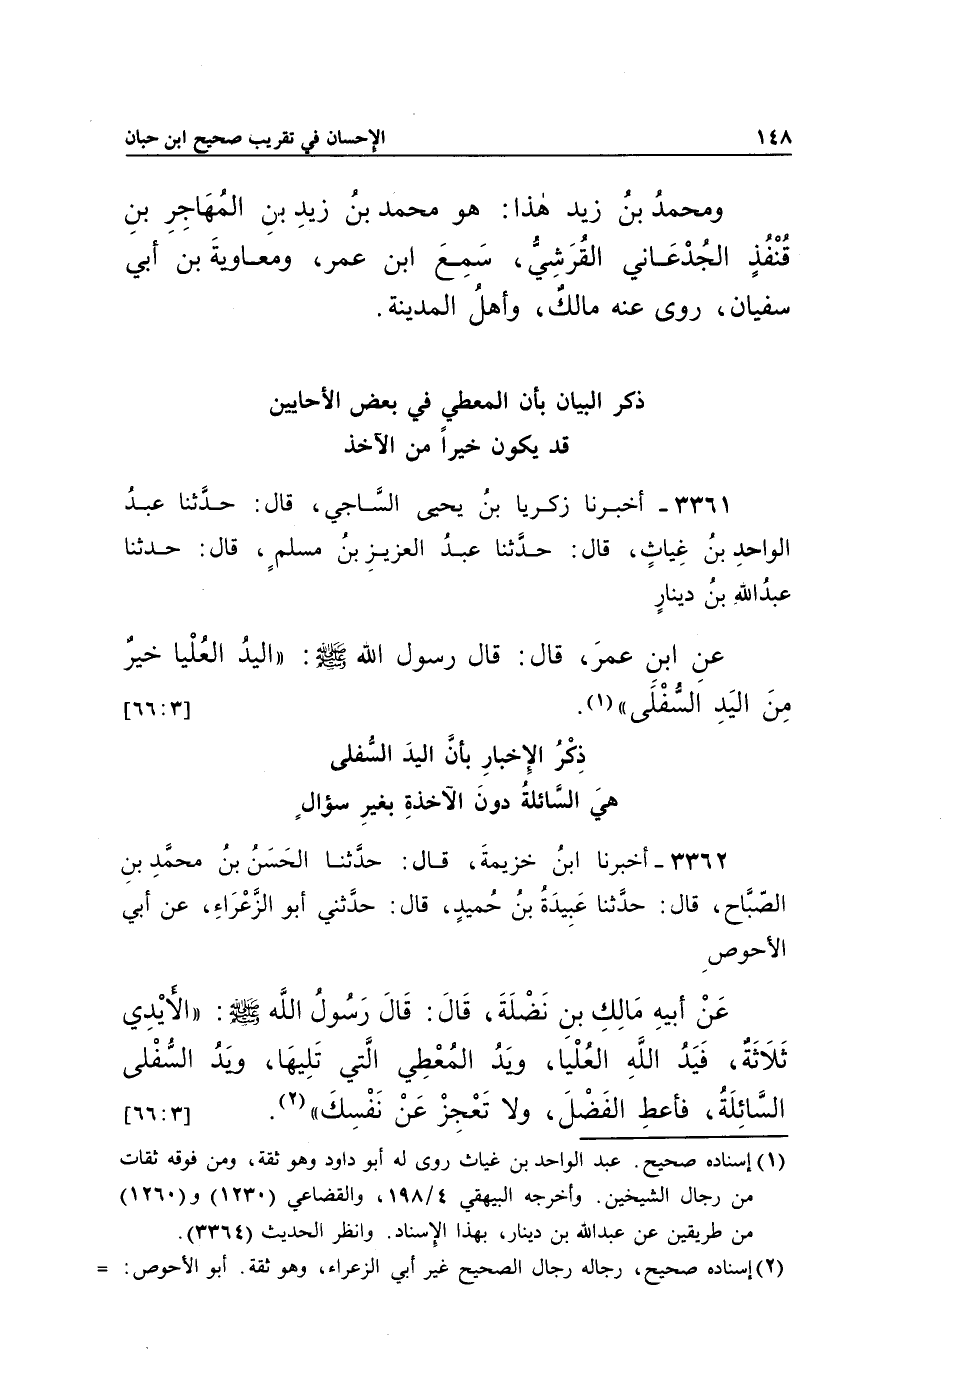 ١٤٨ الإحسان في تقريب صحيح ابن حبان
ومحمدُ بنُ زيد هٰذا: هو محمد بنُ زيدِ بنِ المُهَاجِرِ بنِ
قُنْفُذٍ الجُدْعَاني القُرَشِيُّ، سَمِعَ ابن عمر، ومعاويةَ بن أبي
سفيان، روى عنه مالكٌ، وأهلُ المدينة.
ذكر البيان بأن المعطي في بعض الأحايين
قد يكون خيراً من الآخذ
٣٣٦١ ـ أخبرنا زكريا بنُ يحيى السَّاجي، قال: حدَّثنا عبدُ
الواحدِ بنُ غِياثٍ، قال: حدَّثنا عبدُ العزيزِ بنُ مسلمٍ، قال: حدثنا
عبدُاللهِ بنُ دينارٍ
عنِ ابنِ عمرَ، قال: قال رسول الله ﷺ: «اليدُ العُلْيا خيرٌ
مِنَ اليَدِ السُّفْلَى»(١). [٣: ٦٦]
ذِكْرُ الإِخبارِ بأنَّ اليدَ السُّفلى
هيَ السَّائلةُ دونَ الآخذةِ بغيرِ سؤالٍ
٣٣٦٢ ـ أخبرنا ابنُ خزيمةَ، قال: حدَّثنا الحَسَنُ بنُ محمَّدِ بنِ
الصّبَّاح، قال: حدَّثنا عَبِيدَةُ بنُ حُميدٍ، قال: حدَّثني أبو الزَّعْرَاءِ، عن أبي
الأحوصِ
عَنْ أبيه مَالِكِ بنِ نَضْلَةَ، قَالَ: قَالَ رَسُولُ اللَّه ﷺ: «الأَيْدِي
ثَلَاثَةٌ، فَيَدُ اللَّهِ العُلْيا، ويَدُ المُعْطِي الَّتي تَلِيهَا، ويَدُ السُّفْلى
السَّائِلَةُ، فأعطِ الفَضْلَ، ولا تَعْجِزْ عَنْ نَفْسِكَ»(٢). [٣: ٦٦]
(١) إسناده صحيح. عبد الواحد بن غياث روى له أبو داود وهو ثقة، ومن فوقه ثقات
من رجال الشيخين. وأخرجه البيهقي ٤/١٩٨، والقضاعي (١٢٣٠) و(١٢٦٠)
من طريقين عن عبدالله بن دينار، بهذا الإسناد. وانظر الحديث (٣٣٦٤).
(٢) إسناده صحيح، رجاله رجال الصحيح غير أبي الزعراء، وهو ثقة. أبو الأحوص: =